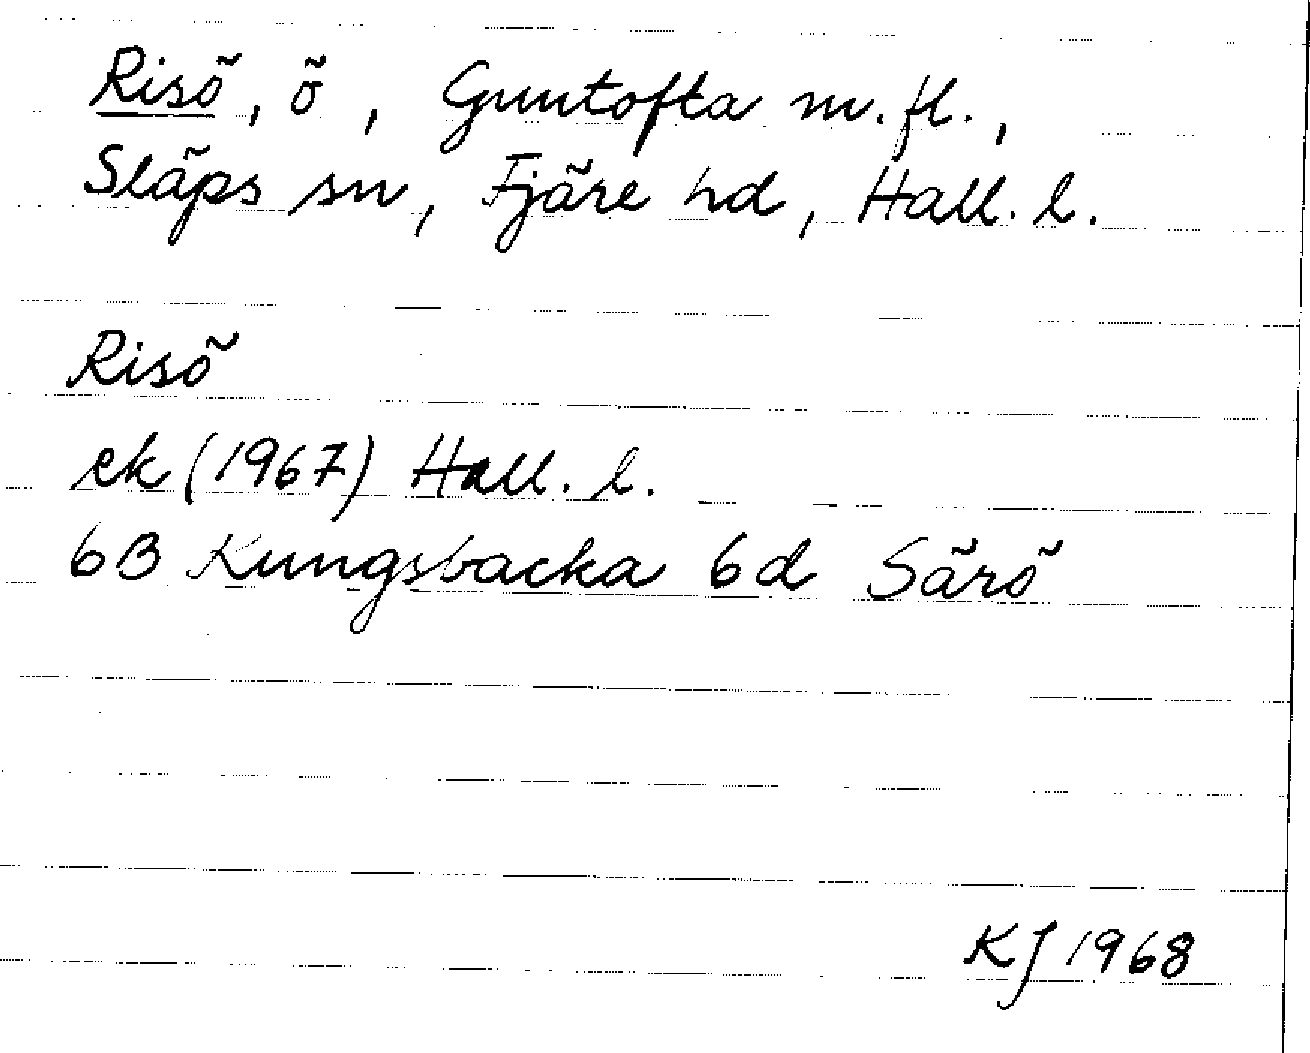 Risö, ö, Guntofta m.fl.,
Släps sn, Fjäre hd, Hall. l.
Risö
ek (1967) Hall. l.
6B Kungsbacka 6d Särö
KJ 1968